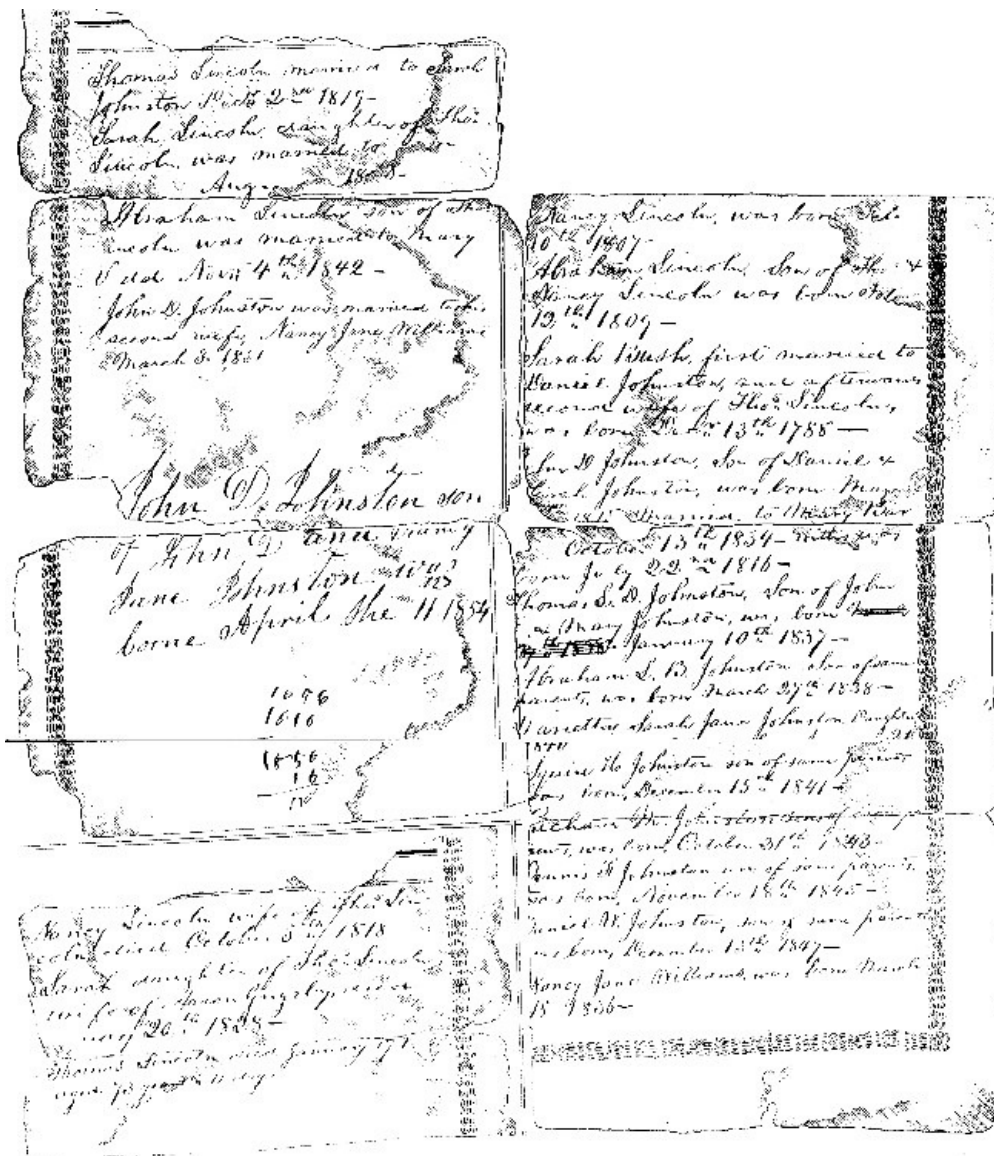 Thomas Lincoln married to Sarah
Johnston Decr 2nd 1819—
Sarah Lincoln, daughter of Thos.
Lincoln, was married to
Aug
Abraham Lincoln, son of Tho
incoln was married to Mary
Todd Novr 4th 1842—
John D. Johnston was married to his
second wife, Nancy Jane Williams
March 5. 1851
John D. Johnston son
of John D and nancy
Jane Johnston was
borne April the 11 1854
1856
1816
1856
16
Nancy Lincoln wife of Thos. Lin-
coln died October 5th 1818
Sarah daughter of Thos. Lincoln,
wife of Aaron Grigsby, died
uary 20th 1828—
Thomas Lincoln died January 17th
aged 73 years & 11 days
Nancy Lincoln, was born Feb.
10th 1807
Abraham Lincoln, Son of Thos. &
Nancy Lincoln was born Feb.
12th 1809—
Sarah Bush, first married to
Daniel Johnston, and afterwards
second wife of Thos. Lincoln,
was born Decr. 13th 1788—
John D Johnston, Son of Daniel &
Sarah Johnston, was born May
married to Mary Bar
October 13th 1834— who was
born July 22nd 1816—
Thomas L. D. Johnston, Son of John
& Mary Johnston, was born
January 10th 1837—
Abraham L. B. Johnston Son of same
parents, was born March 27th 1838—
Sarah Jane Johnston Daughter
Squire H. Johnston son of same parents
was born, December 15th 1841—
Richard M. Johnston son of same pa
rents, was born, October 31th 1843—
Dennis F. Johnston son of same parents
was born, November 18th 1845—
Daniel W. Johnston, son of same parents
was born, December 13th 1847—
Nancy Jane Williams, was born March
18 1836—